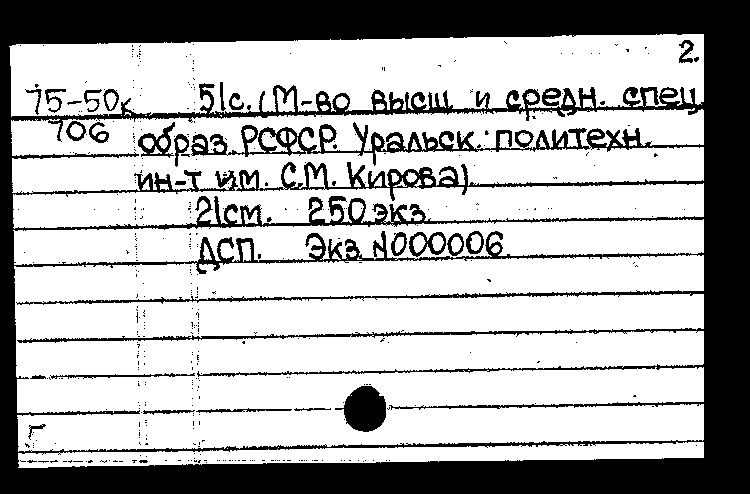 2.
75-50к 51с. (М-во высш и средн. спец.
706 образ. РСФСР. Уральск. политехн.
ин-т им. С.М. Кирова)
21см. 250 экз.
ДСП. Экз. №000006.
Г